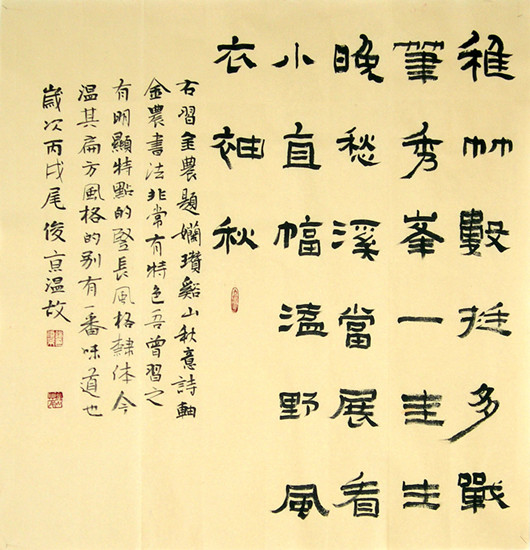 稚竹數挺多戰
筆秀峯一圭生
晚愁溪當展看
小直幅溘野風
衣袖秋
右習金農題嬾瓚谿山秋意詩軸
金農書法非常有特色吾曾習之
有明顯特點的豎長風格隸体今
溫其扁方風格的別有一番味道也
歲次丙戌尾俊京溫故